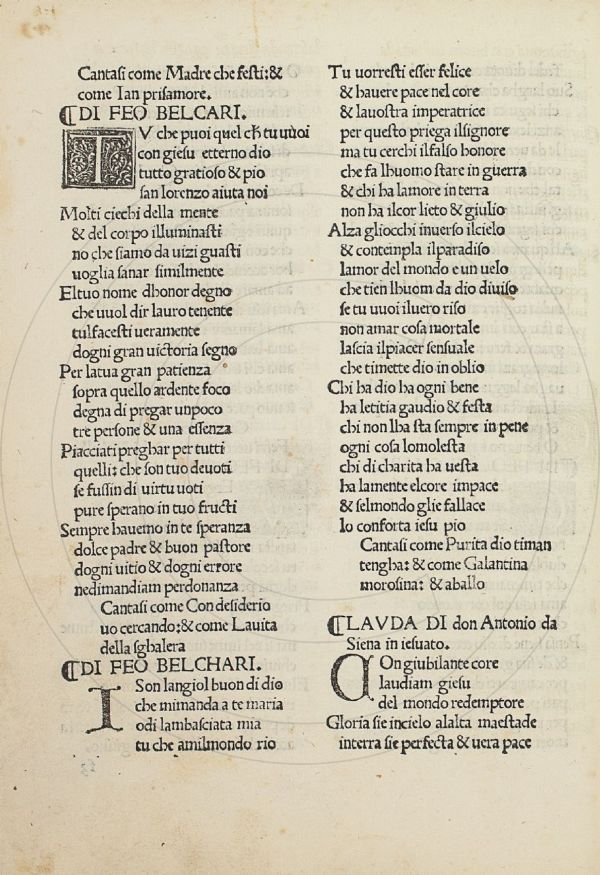 Cantasi come Madre che festi:&
come Ian prisamore.
⁋DI FEO BELCARI.
TV che puoi quel ch̄ tu uuoi
con giesu etterno dio
tutto gratioso & pio
san lorenzo aiuta noi
Molti ciechi della mente
& del corpo illuminasti
no che siamo da uizi guasti
uoglia sanar similmente
Eltuo nome dhonor degno
che uuol dir lauro tenente
tulfacesti ueramente
dogni gran uictoria segno
Per latua gran patienza
sopra quello ardente foco
degna di pregar unpoco
tre persone & una essenza
Piacciati preghar per tutti
quelli: che son tuo deuoti
se fussin di uirtu uoti
pure sperano in tuo fructi
Sempre hauemo in te speranza
dolce padre & buon pastore
dogni uitio & dogni errore
nedimandiam perdonanza
Cantasi come Con desiderio
uo cercando:& come Lauita
della sghalera
⁋DI FEO BELCHARI.
ISon langiol buon di dio
che mimanda a te maria
odi lambasciata mia
tu che amilmondo rio
Tu uorresti esser felice
& hauere pace nel core
& lauostra imperatrice
per questo priega ilsignore
ma tu cerchi ilfalso honore
che fa lhuomo stare in guerra
& chi ha lamore in terra
non ha ilcor lieto & giulio
Alza gliocchi inuerso ilcielo
& contempla ilparadiso
lamor del mondo e un uelo
che tien lhuom da dio diuiso
se tu uuoi iluero riso
non amar cosa mortale
lascia ilpiacer sensuale
che timette dio in oblio
Chi ha dio ha ogni bene
ha letitia gaudio & festa
chi non lha sta sempre in pene
ogni cosa lomolesta
chi di charita ha uesta
ha lamente elcore impace
& selmondo glie fallace
lo conforta iesu pio
Cantasi come Purita dio timan
tengha: & come Galantina
morosina: & aballo
⁋LAVDA DI don Antonio da
Siena in iesuato.
COn giubilante core
laudiam giesu
del mondo redemptore
Gloria sie incielo alalta maestade
interra sie perfecta & uera pace